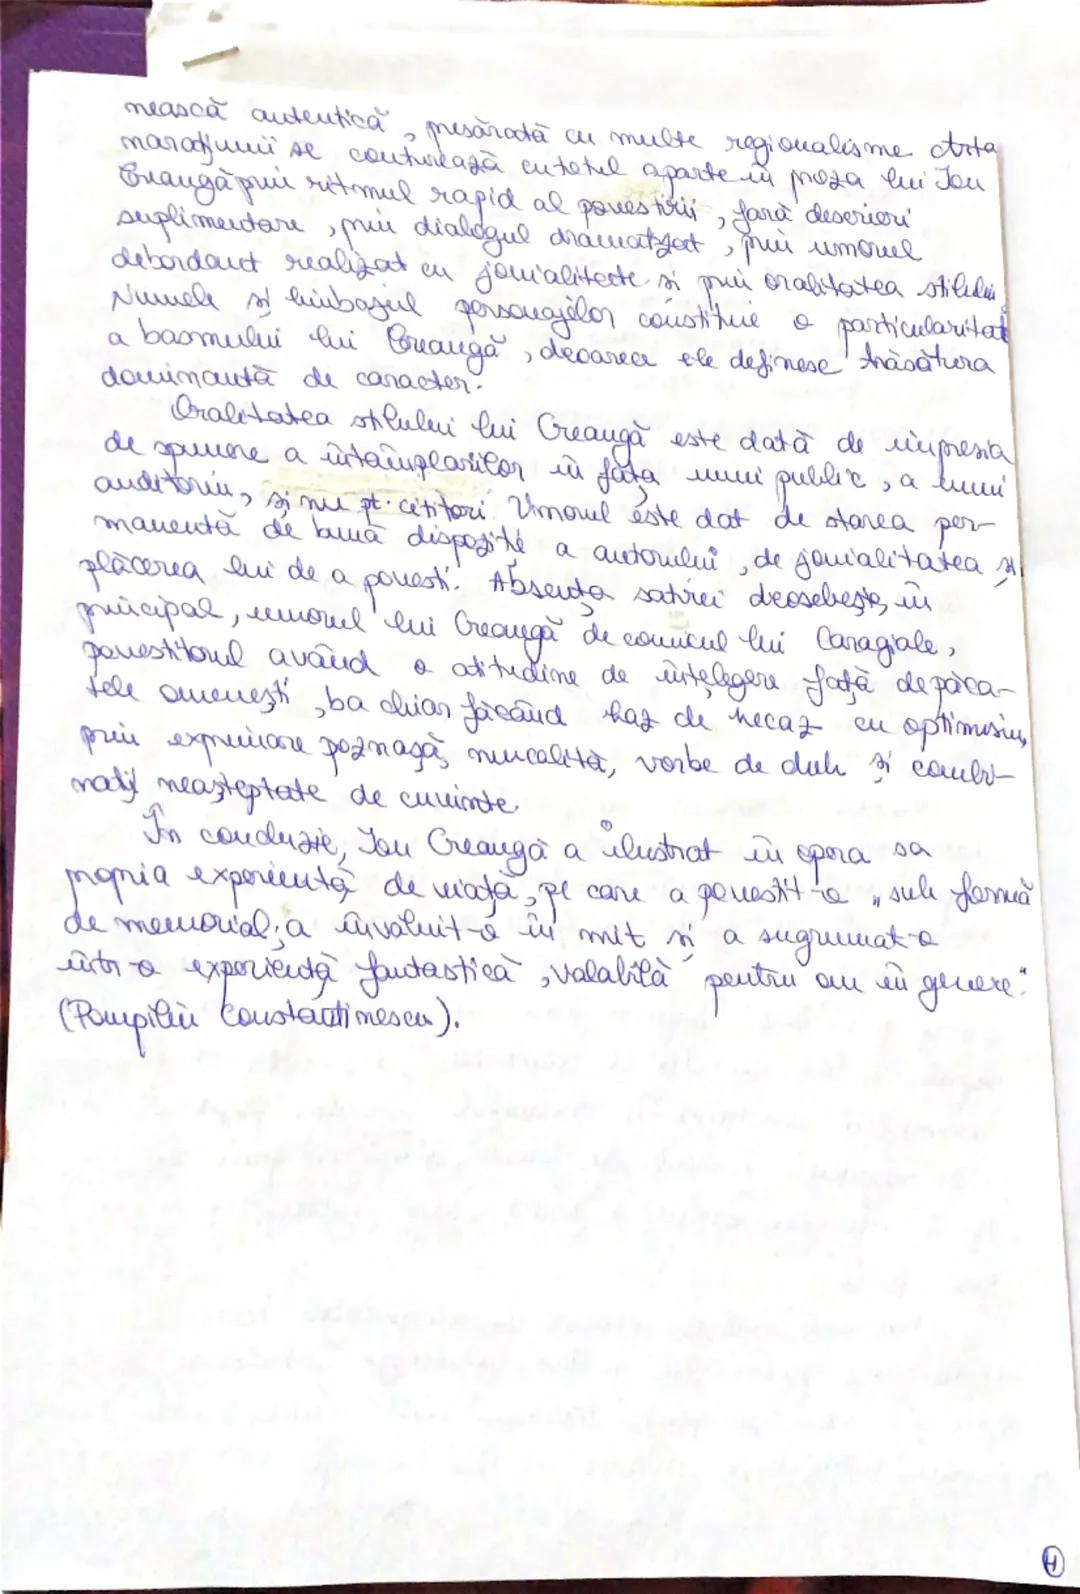 nească autentică, presărată cu multe regionalisme. Arta
narațiunii se conturează cu totul aparte în proza lui Ion
Creangă prin ritmul rapid al povestirii, fară descrieri
suplimentare, prin dialogul dramatizat, prin umorul
debordant realizat cu jovialitate și prin oralitatea stilului.
Numele și limbajul personajelor constituie o particularitate
a basmului lui Creangă, deoarece ele definesc trăsătura
dominantă de caracter.
Oralitatea stilului lui Creangă este dată de impresia
de spunere a întâmplărilor în fața unui public, a unui
auditoriu, și nu pt. cititori. Umorul este dat de starea per-
manentă de bună dispoziție a autorului, de jovialitatea și
plăcerea lui de a povesti. Absența satirei deosebește, în
principal, umorul lui Creangă de comicul lui Caragiale,
povestitorul având o atitudine de înțelegere față de păca-
tele omenești, ba chiar făcând haz de necaz cu optimism,
prin exprimare poznașă, mucalită, vorbe de duh și combi-
nații neașteptate de cuvinte.
În concluzie, Ion Creangă a ilustrat în opera sa
propria experiență de viață, pe care a povestit-o „sub formă
de memorial; a învăluit-o în mit și a sugrumat-o
într-o experiență fantastică, valabilă pentru om în genere."
(Pompiliu Constantinescu).
4